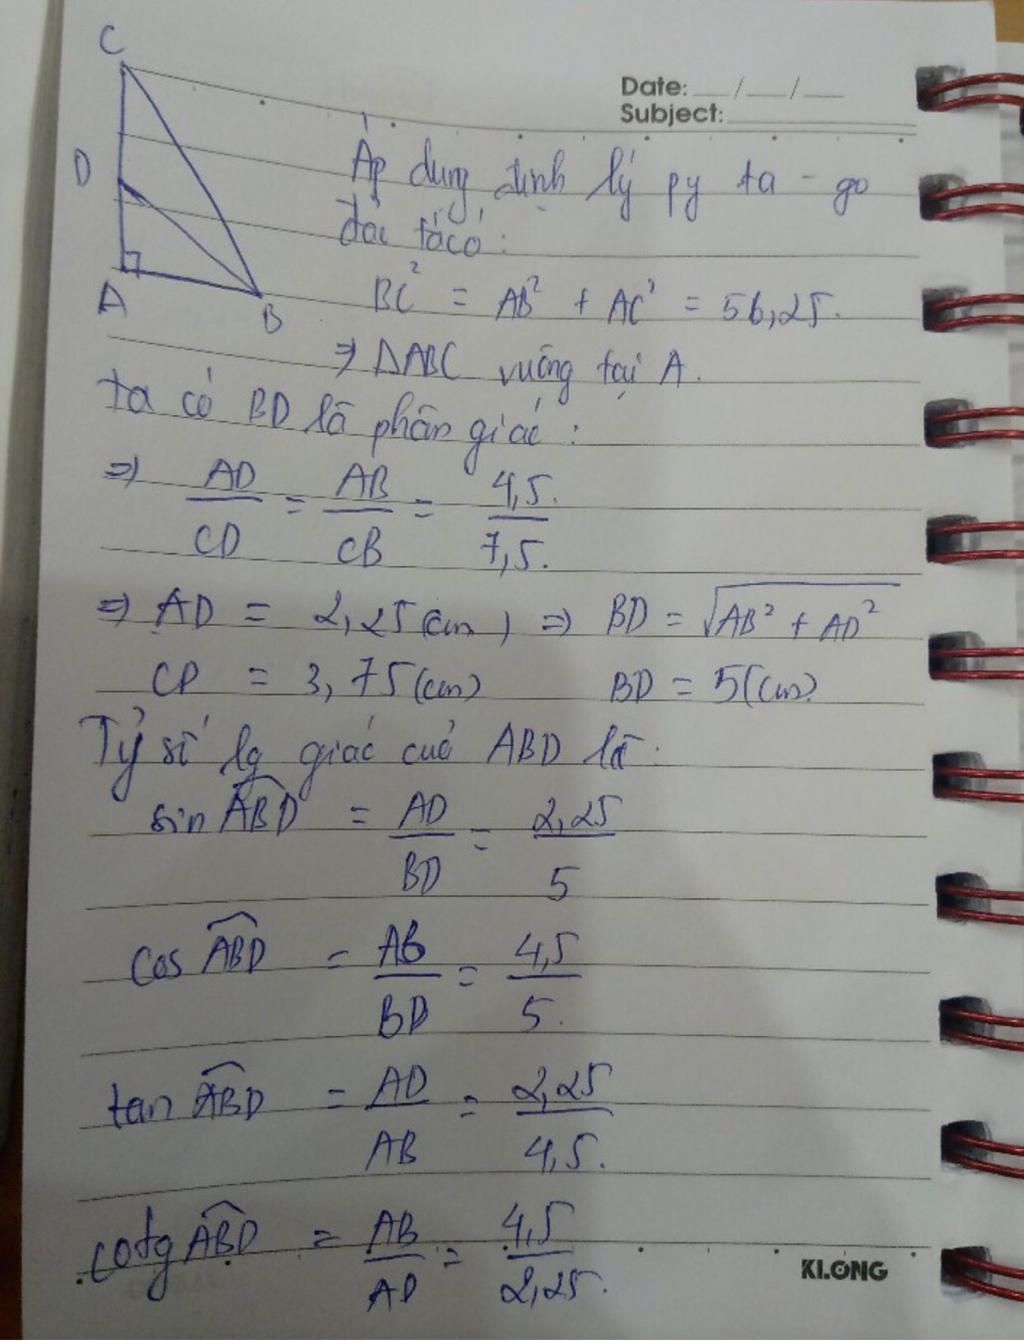 C
D
A
B
Date: __/__/__
Subject:
Áp dụng định lý py ta - go
đảo ta có:
BC² = AB² + AC² = 56,25.
⇒ ΔABC vuông tại A.
ta có BD là phân giác :
⇒ AD/CD = AB/CB = 4,5/7,5.
⇒ AD = 2,25 (cm) ⇒ BD = √AB² + AD²
CD = 3,75 (cm) BD = 5 (cm)
Tỷ số lg giác của ABD là:
sin ABD = AD/BD = 2,25/5
cos ABD = AB/BD = 4,5/5.
tan ABD = AD/AB = 2,25/4,5.
cotg ABD = AB/AD = 4,5/2,25.
KLONG